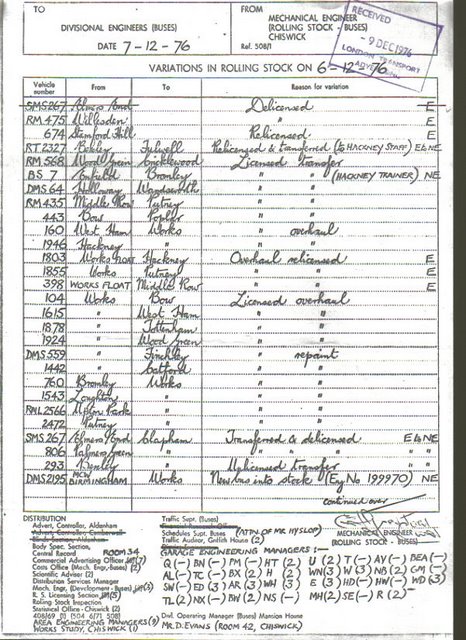 TO
DIVISIONAL ENGINEERS (BUSES)
DATE 7-12-76
FROM
MECHANICAL ENGINEER
(ROLLING STOCK - BUSES)
CHISWICK
Ref. 508/1
RECEIVED
- 9 DEC 1976
LONDON TRANSPORT
VARIATIONS IN ROLLING STOCK ON 6-12-76
Vehicle number From To Reason for variation
SMS267 Elmers End Delicensed E
RM 475 Willesden " E
674 Stamford Hill Relicensed E
RT 2327 Bexley Fulwell Relicensed & transferred (to HACKNEY STAFF) E&NE
RM 568 Wood Green Cricklewood Licensed transfer
BS 7 Enfield Bromley " " (HACKNEY TRAINER) NE
DMS 64 Holloway Wandsworth " "
RM 435 Middle Row Putney " "
443 Bow Poplar " "
160 West Ham Works " overhaul
1946 Hackney " " "
1803 Works FLOAT Hackney Overhaul relicensed E
1855 Works Putney " " E
398 WORKS FLOAT Middle Row " " E
104 Works Bow Licensed overhaul
1615 " West Ham " "
1878 " Tottenham " "
1924 " Wood Green " "
DMS 559 " Finchley " repaint
1442 " Catford " "
760 Bromley Works " "
1543 Loughton " " "
RML 2566 Upton Park " " "
2472 Putney " " "
SMS 267 Elmers End Clapham Transferred & delicensed E&NE
806 Palmers Green " " " " "
293 Bexley " Unlicensed transfer " "
DMS2195 MCW BIRMINGHAM Works New bus into stock (Eng No 199970) NE
continued over
DISTRIBUTION
Advert, Controller, Aldenham
Advert, Controller, Camberwell
Body Spec. Section,
Central Record ROOM 34
Commercial Advertising Officer (7)
Costs Office (Mech. Engr.-Buses) (2)
Scientific Adviser (2)
Distribution Services Manager
Mech. Engr. (Development - Buses) (3)
R. S. Licensing Section (5)
Rolling Stock Inspection
Statistical Office - Chiswick (2)
AREA ENGINEERING MANAGERS (9)
WORKS STUDY, CHISWICK (1)
Traffic Supt. (Buses)
Schedules Supt. Buses (ATTN. OF MR HYSLOP)
Traffic Auditor, Griffith House (2)
MECHANICAL ENGINEER
(ROLLING STOCK - BUSES)
GARAGE ENGINEERING MANAGERS :-
Q (-) BN (-) PM (-) HT (2) U (2) T (-) AV (-) BEA (-)
AL (-) TC (-) BX (2) H (2) WN (3) W (3) NB (2) GM (-)
SW (-) ED (3) AR (3) WH (3) E (3) HD (-) HW (-) WD (3)
TL (2) NX (-) BW (2) NS (-) MH (2) SE (-) R (2)
Divl. Operating Manager (Buses) Mansion House
MR D. EVANS (ROOM 42, CHISWICK)